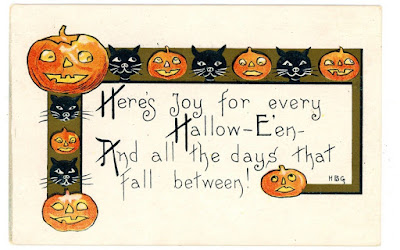 Here's Joy for every
Hallow-E'en-
And all the days that
fall between!
HBG